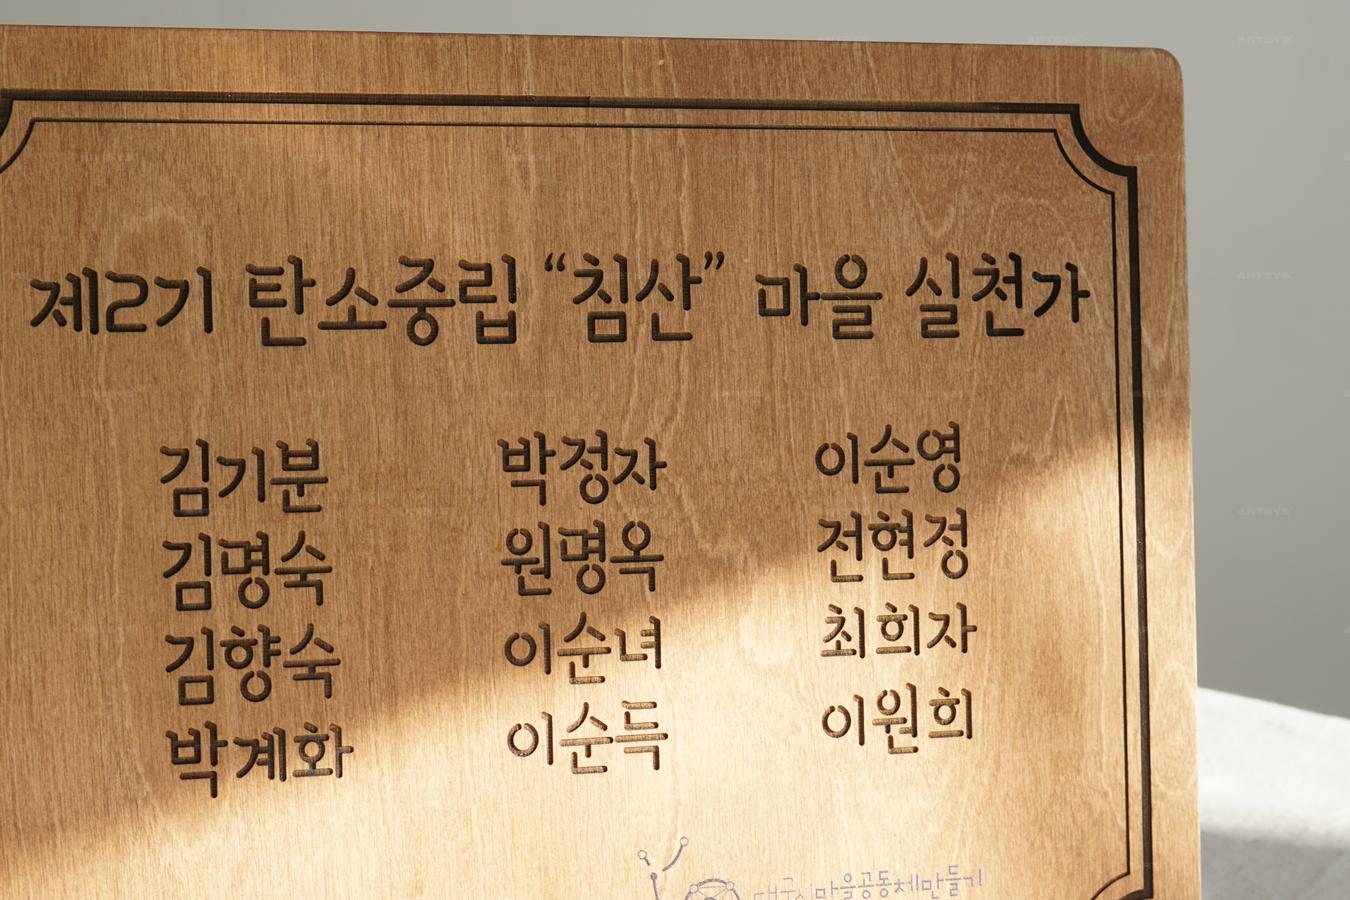 제2기 탄소중립 “침산” 마을 실천가
김기분 박정자 이순영
김명숙 원명옥 전현정
김향숙 이순녀 최희자
박계화 이순득 이원희
대구시마을공동체만들기